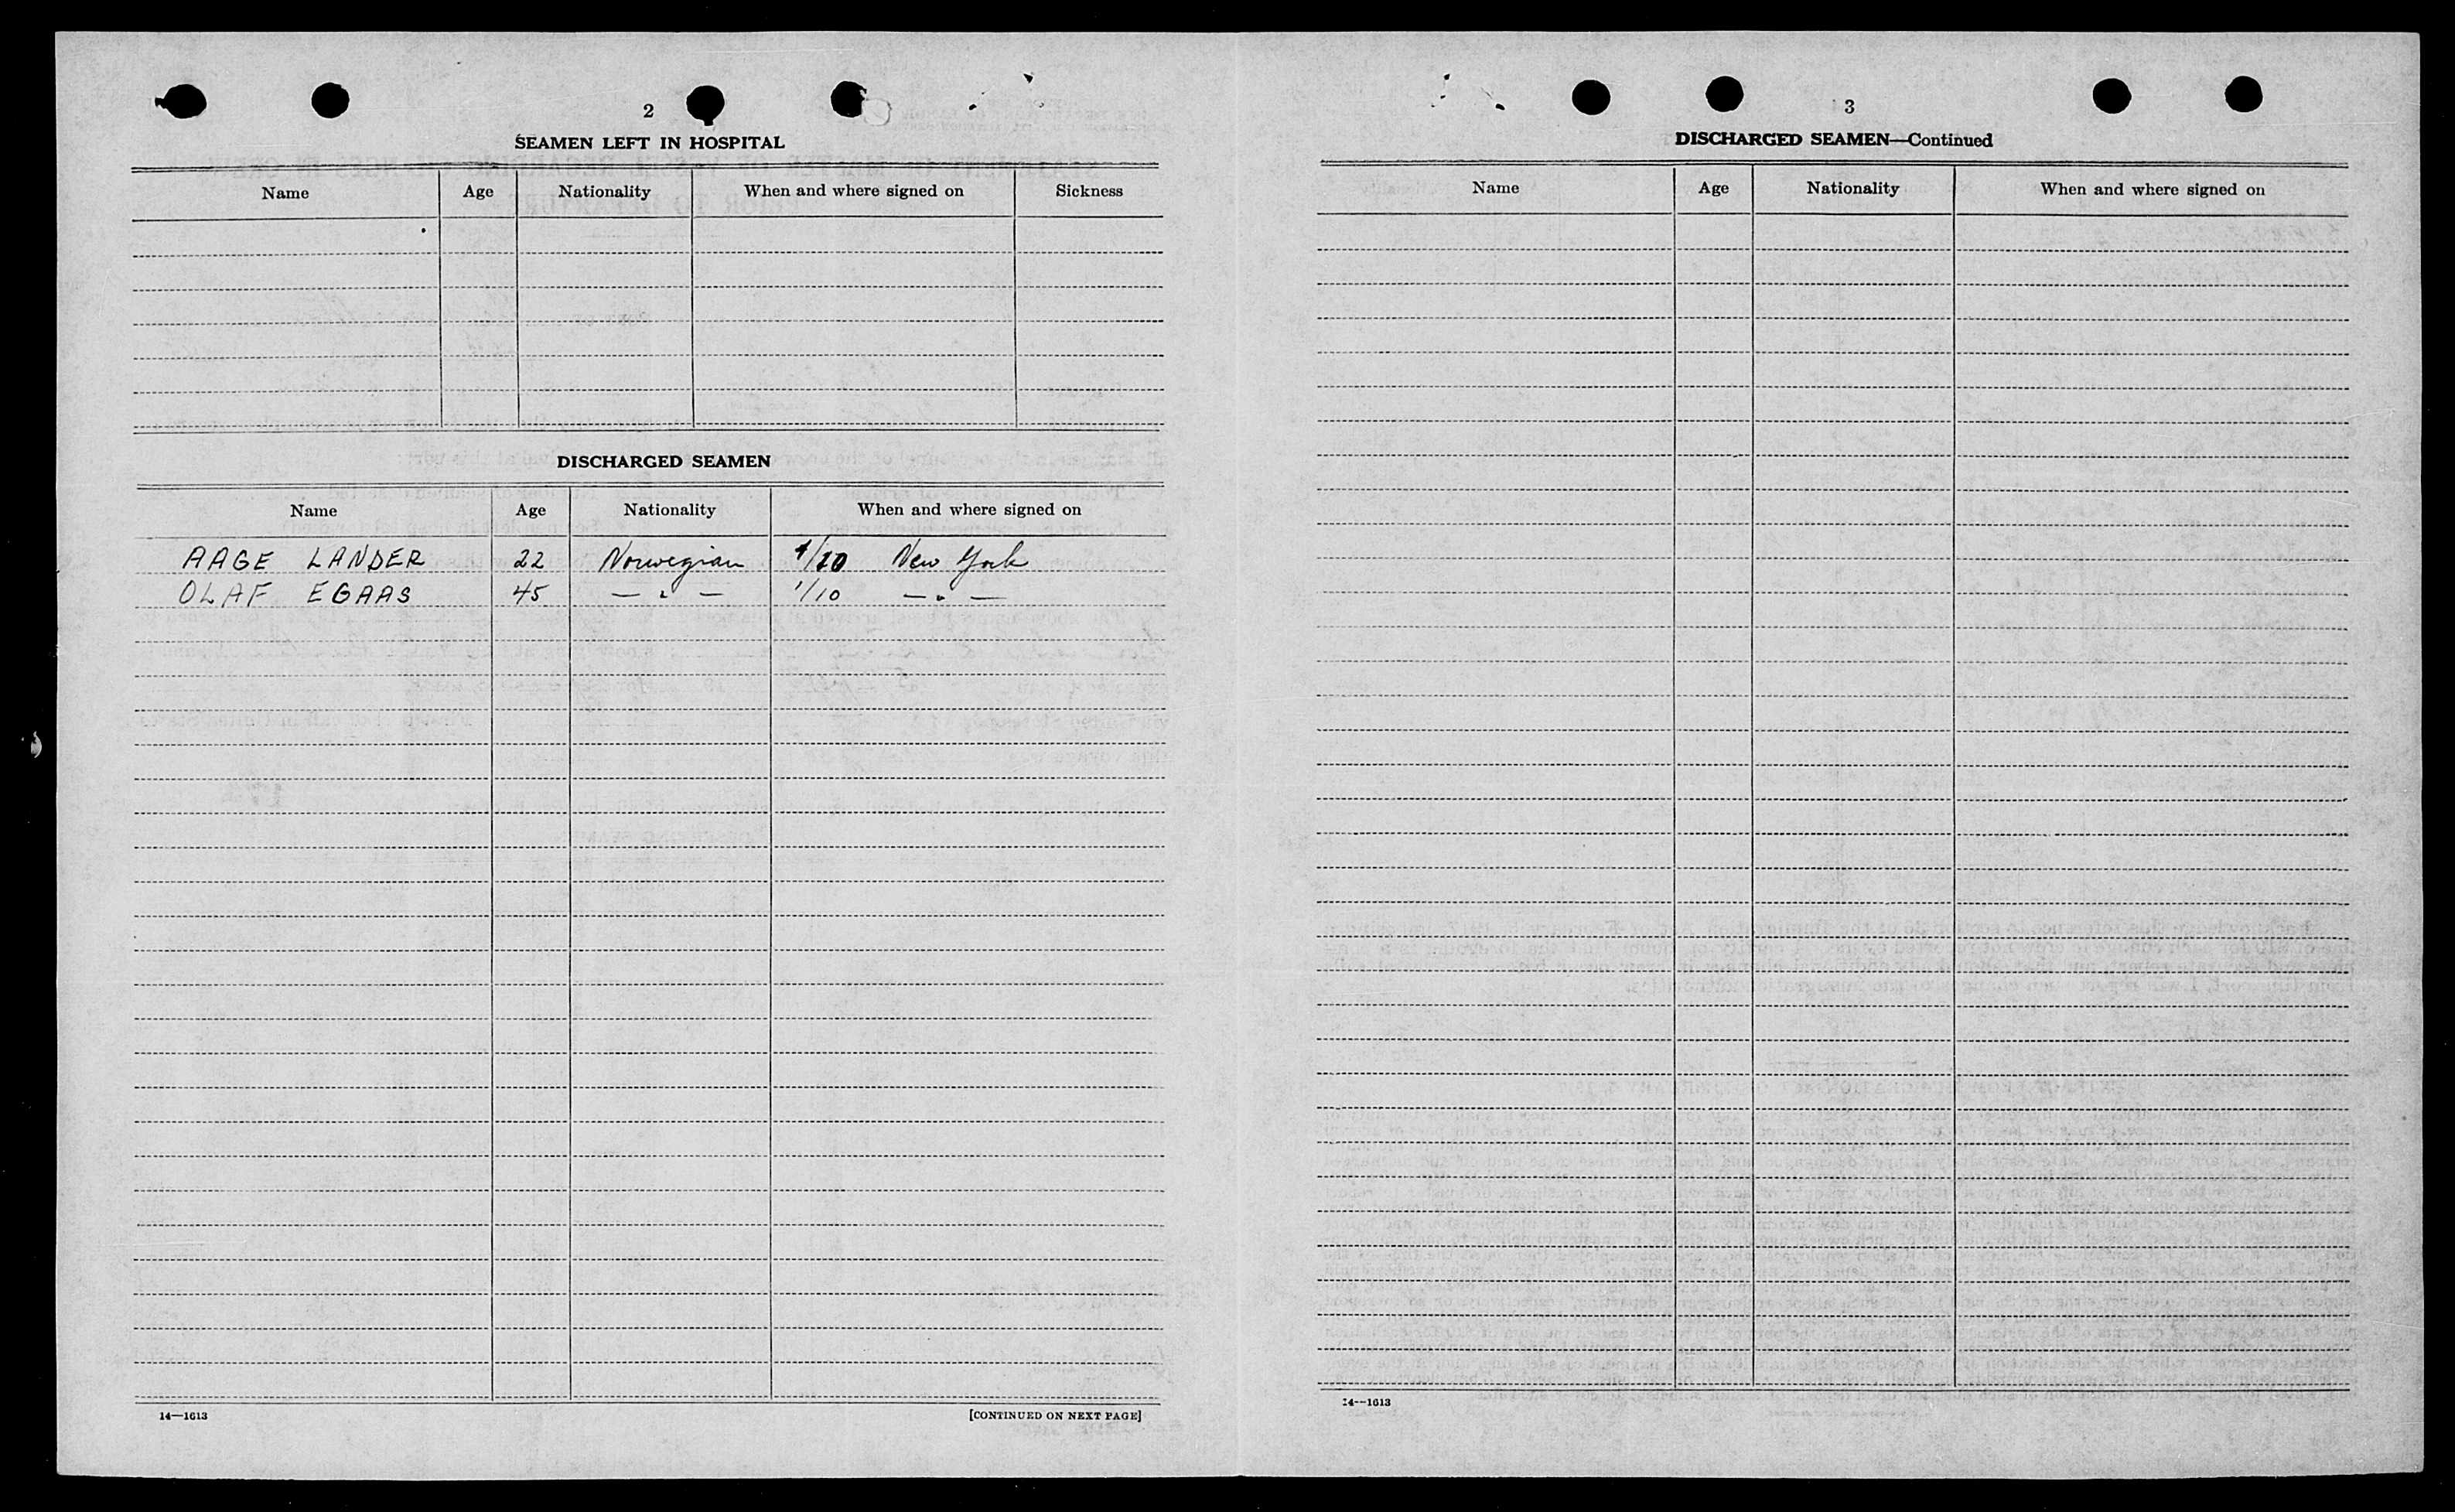 2
SEAMEN LEFT IN HOSPITAL
Name Age Nationality When and where signed on Sickness
DISCHARGED SEAMEN
Name Age Nationality When and where signed on
AAGE LANDER 22 Norwegian New York
OLAF EGAAS 45 — " — 1/10 — " —
14—1613 [CONTINUED ON NEXT PAGE]
3
DISCHARGED SEAMEN—Continued
Name Age Nationality When and where signed on
14—1613